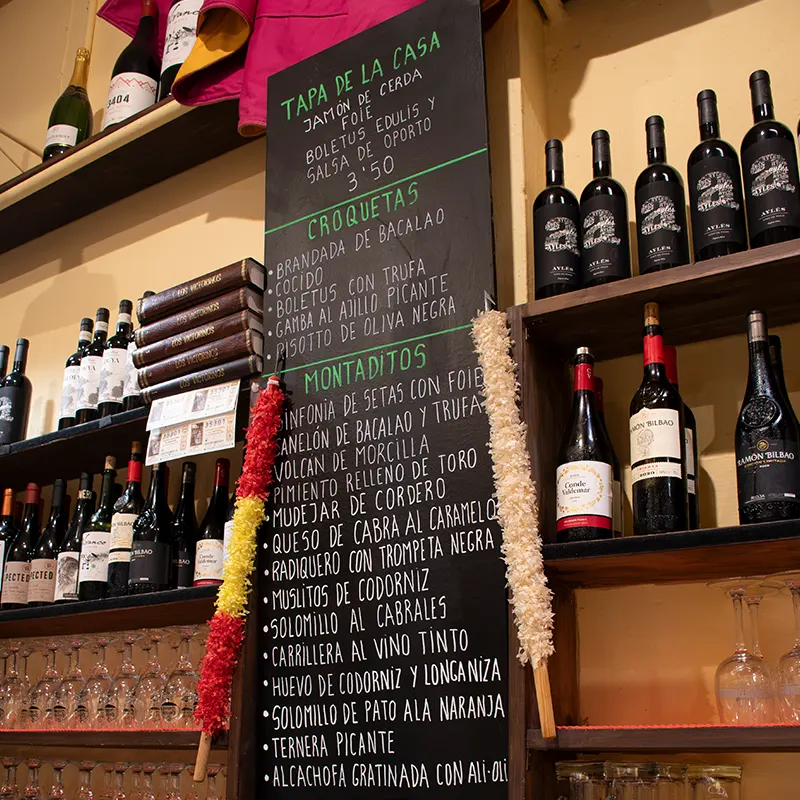 TAPA DE LA CASA
JAMÓN DE CERDA
FOIE
BOLETUS EDULIS Y
SALSA DE OPORTO
3'50
CROQUETAS
• BRANDADA DE BACALAO
• COCIDO
• BOLETUS CON TRUFA
• GAMBA AL AJILLO PICANTE
• RISOTTO DE OLIVA NEGRA
MONTADITOS
SINFONIA DE SETAS CON FOIE
CANELÓN DE BACALAO Y TRUFA
VOLCAN DE MORCILLA
PIMIENTO RELLENO DE TORO
MUDEJAR DE CORDERO
• QUESO DE CABRA AL CARAMELO
• RADIQUERO CON TROMPETA NEGRA
• MUSLITOS DE CODORNIZ
• SOLOMILLO AL CABRALES
• CARRILLERA AL VINO TINTO
• HUEVO DE CODORNIZ Y LONGANIZA
• SOLOMILLO DE PATO ALA NARANJA
• TERNERA PICANTE
• ALCACHOFA GRATINADA CON ALI-OLI
3404
LOS VICTORINOS
LOS VICTORINOS
LOS VICTORINOS
LOS VICTORINOS
LOS VICTORINOS
AYLÉS
AYLÉS
AYLÉS
AYLÉS
AYLÉS
Conde
Valdemar
RAMÓN BILBAO
RAMÓN BILBAO
BILBAO